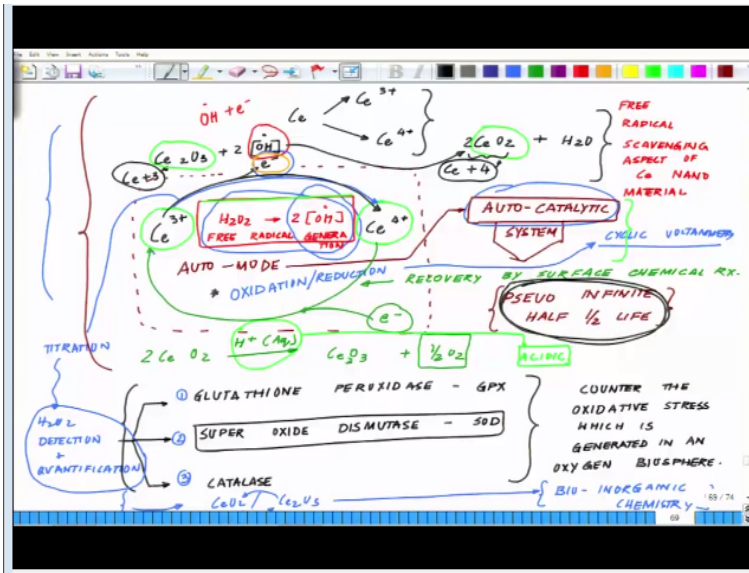 File Edit View Insert Actions Tools Help
ȮH + e⁻
Ce
Ce³⁺
Ce⁴⁺
Ce₂O₃ + 2 [ȮH]
2CeO₂ + H₂O
Ce+3
e⁻
Ce+4
FREE
RADICAL
SCAVENGING
ASPECT OF
Ce NANO
MATERIAL
Ce³⁺
H₂O₂ → 2 [ȮH]
FREE RADICAL GENERA
TION
Ce⁴⁺
AUTO-CATALYTIC
SYSTEM
CYCLIC VOLTAMMETRY
AUTO-MODE
* OXIDATION/REDUCTION
RECOVERY BY SURFACE CHEMICAL RX.
e⁻
PSEUO INFINITE
HALF ½ LIFE
TITRATION
2 Ce O₂ H⁺ (Aq) Ce₂O₃ + ½ O₂
ACIDIC
H₂O₂
DETECTION
+
QVANTIFICATION
① GLUTATHIONE PEROXIDASE - GPX
② SUPER OXIDE DISMUTASE - SOD
③ CATALASE
CeO₂ Ce₂O₃
COUNTER THE
OXIDATIVE STRESS
WHICH IS
GENERATED IN AN
OXYGEN BIUSPHERE.
BIU-INORGANIC
CHEMISTRY
69 / 74
69